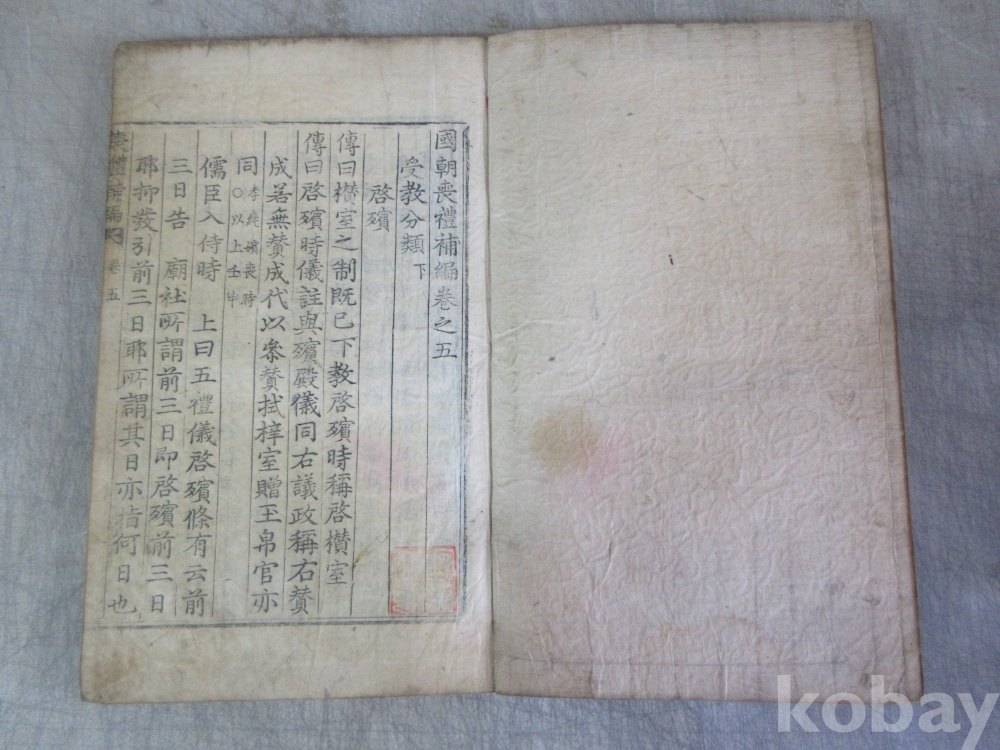 國朝喪禮補編卷之五
受教分類 下
啓殯
傳曰欑室之制既已下教啓殯時稱啓欑室
傳曰啓殯時儀註與殯殿儀同右議政稱右贊
成若無贊成代以參贊拭梓室贈玉帛官亦
同 孝純嬪喪時 ○以上壬申
儒臣入侍時 上曰五禮儀啓殯條有云前
三日告 廟社所謂前三日即啓殯前三日
耶抑發引前三日耶所謂其日亦指何日也
喪禮補編 卷五
kobay